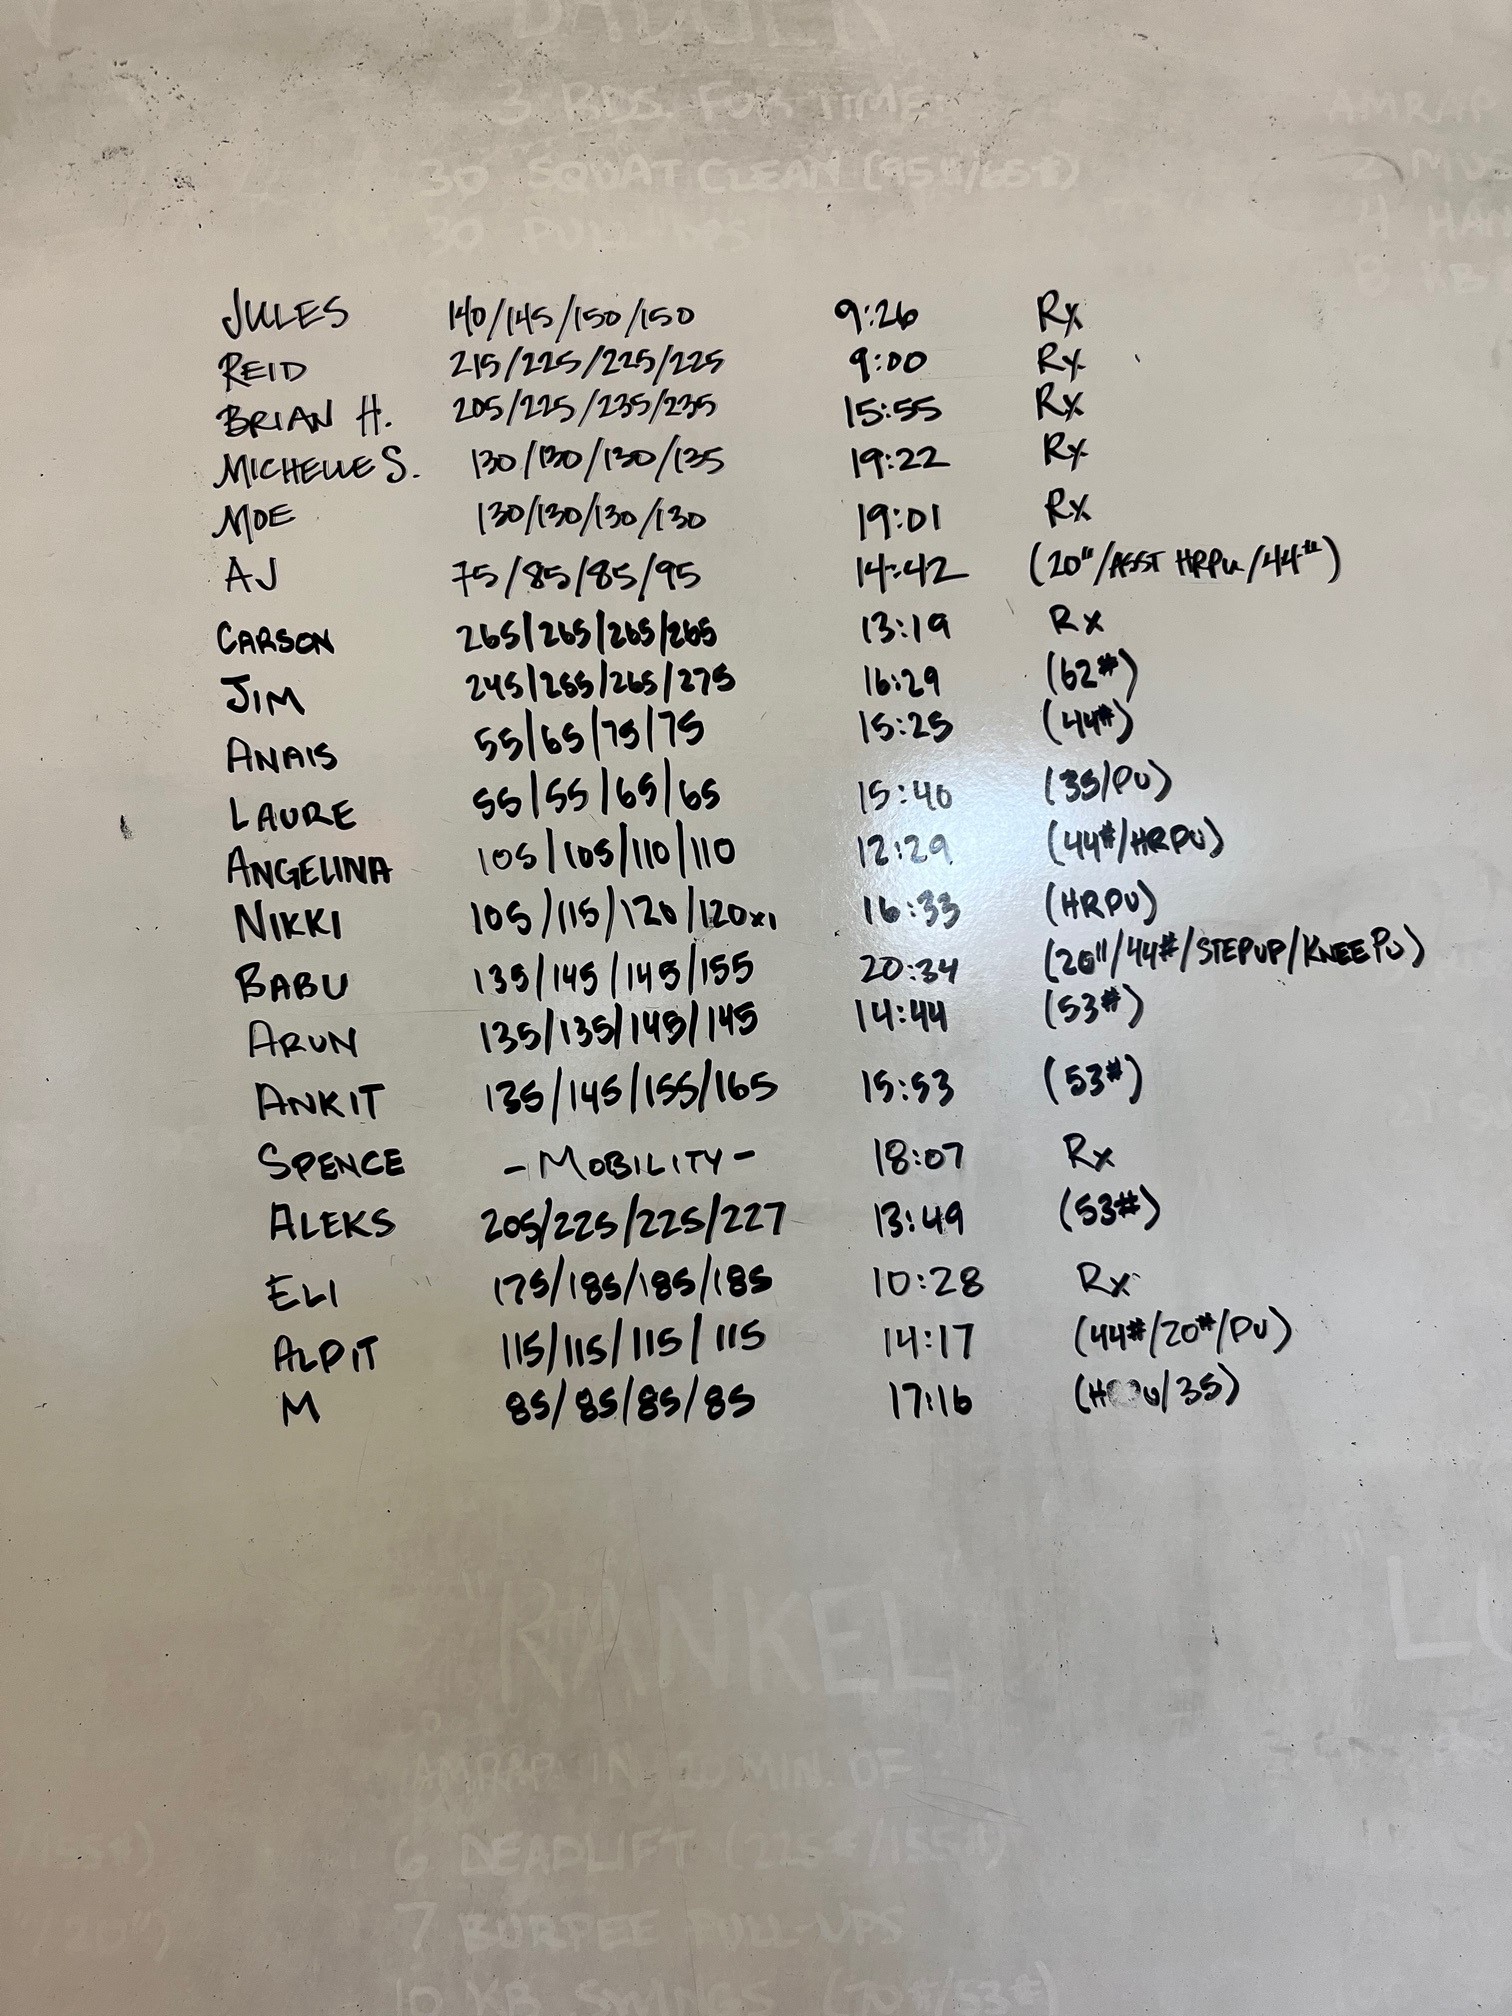 BADGER
3 RDS. FOR TIME
AMRAP
30 SQUAT CLEAN (95#/65#)
30 PULL-UPS
4
8 KB
JULES 140/145/150/150 9:26 Rx
REID 215/225/225/225 9:00 Rx
BRIAN H. 205/225/235/235 15:55 Rx
MICHELLE S. 130/130/130/135 19:22 Rx
MOE 130/130/130/130 19:01 Rx
AJ 75/85/85/95 14:42 (20"/ASST HRPU/44#)
CARSON 265/265/265/265 13:19 Rx
JIM 245/255/265/275 16:29 (62#)
ANAIS 55/65/75/75 15:25 (44#)
LAURE 55/55/65/65 15:40 (35/PU)
ANGELINA 105/105/110/110 12:29 (44#/HRPU)
NIKKI 105/115/120/120x1 16:33 (HRPU)
BABU 135/145/145/155 20:34 (20"/44#/STEPUP/KNEE PU)
ARUN 135/135/145/145 14:44 (53#)
ANKIT 135/145/155/165 15:53 (53#)
SPENCE -MOBILITY- 18:07 Rx
ALEKS 205/225/225/227 13:49 (53#)
ELI 175/185/185/185 10:28 Rx
ALPIT 115/115/115/115 14:17 (44#/20#/PU)
M 85/85/85/85 17:16 /35)
"RANKEL"
AMRAP IN 20 MIN. OF
6 DEADLIFT (225#/155#)
7 BURPEE PULL-UPS
/20")
10 KB SWINGS (70#/53#)